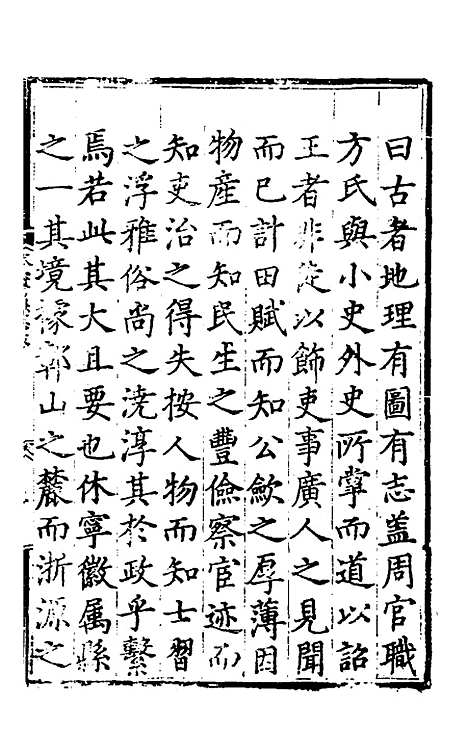 曰古者地理有圖有志盖周官職
方氏與小史外史所掌而道以詔
王者非徒以飾吏事廣人之見聞
而已計田賦而知公斂之厚薄因
物產而知民生之豐儉察宦迹而
知吏治之得失按人物而知士習
之浮雅俗尚之澆淳其於政乎繫
焉若此其大且要也休寧徽属縣
之一其境據鄣山之麓而浙源之